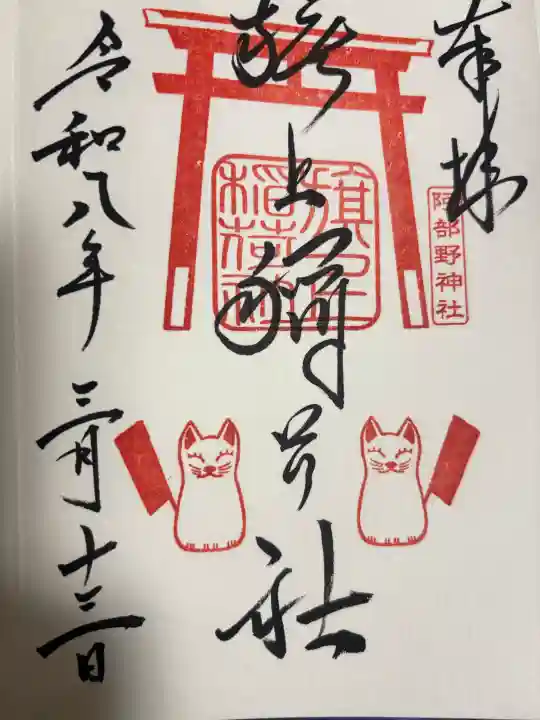 奉拝
阿部野神社
旗上稲荷社
旗上
稲荷社
令和八年三月十三日